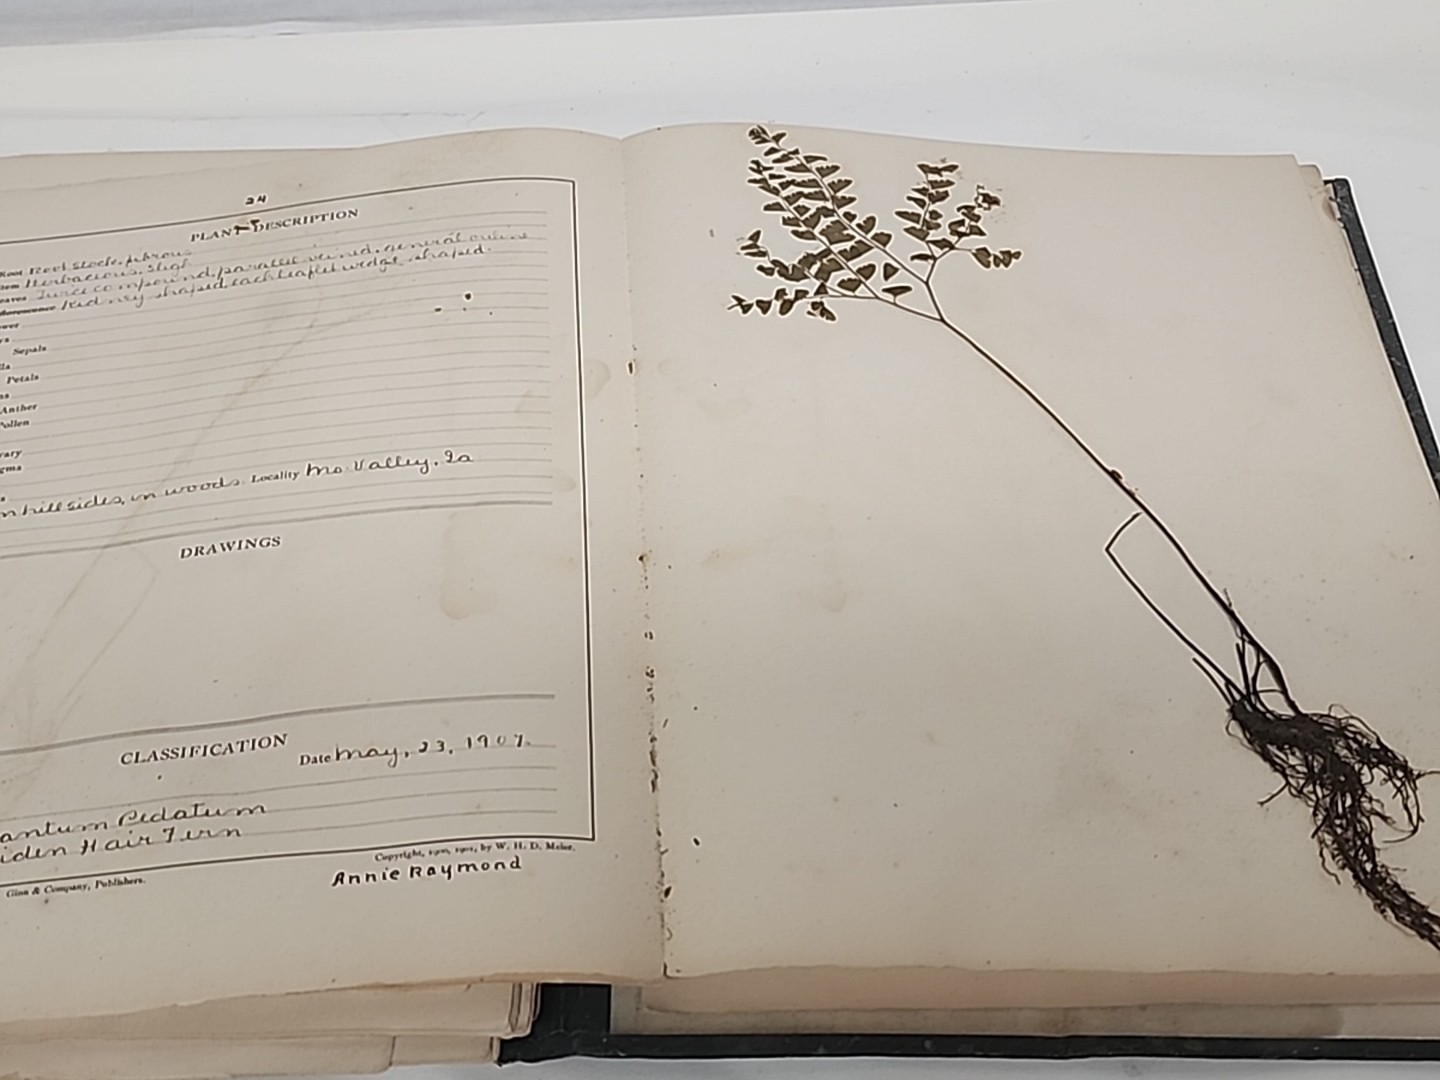 24
PLANT DESCRIPTION
Root Root Stock, fibrous
tem Herbaceous, Slight
eaves Twice compound, parallel veined, general outline
florescence Kidney shaped, each leaflet wedge shaped.
wer
Sepals
lla
Petals
Anther
Pollen
ary
gma
n hillsides, in woods. Locality Mo. Valley, Ia
DRAWINGS
CLASSIFICATION
Date May, 23, 1907.
antum Pedatum
iden Hair Fern
Copyright, 1900, 1901, by W. H. D. Meier.
Ginn & Company, Publishers.
Annie Raymond